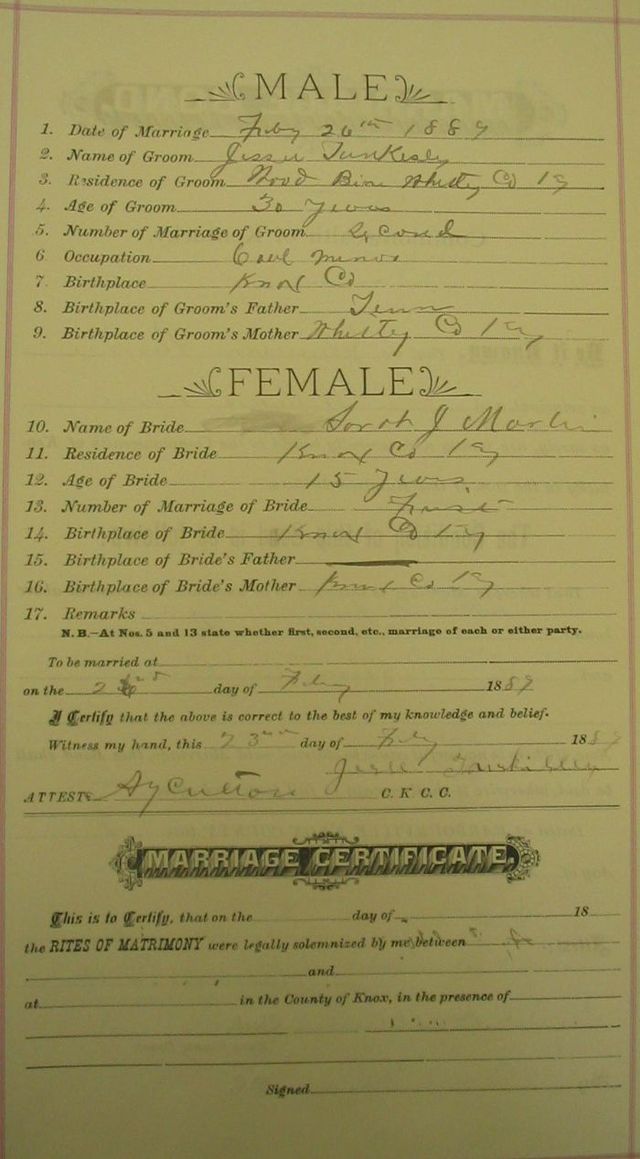 MALE
1. Date of Marriage Feby 26th 1889
2. Name of Groom Jesse Tunkesley
3. Residence of Groom Wood Bine Whitley Co Ky
4. Age of Groom 30 years
5. Number of Marriage of Groom Second
6 Occupation Coal miner
7 Birthplace Knox Co
8. Birthplace of Groom's Father Tenn
9. Birthplace of Groom's Mother Whitley Co Ky
FEMALE
10. Name of Bride Sarah J Martin
11. Residence of Bride Knox Co Ky
12. Age of Bride 15 years
13. Number of Marriage of Bride First
14. Birthplace of Bride Knox Co Ky
15. Birthplace of Bride's Father
16. Birthplace of Bride's Mother Knox Co Ky
17. Remarks
N.B.—At Nos. 5 and 13 state whether first, second, etc., marriage of each or either party.
To be married at
on the day of Feby 1889
I Certify that the above is correct to the best of my knowledge and belief.
Witness my hand, this 23rd day of Feby 1889
Jesse
ATTEST: Culton C. K. C. C.
MARRIAGE CERTIFICATE.
This is to Certify, that on the day of 18
the RITES OF MATRIMONY were legally solemnized by me between
and
at in the County of Knox, in the presence of
Signed